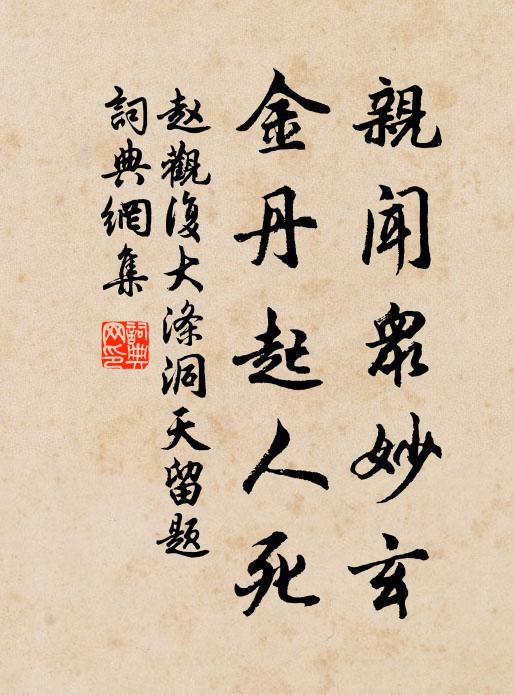 親聞眾妙玄
金丹起人死
赵觀復大涤洞天留题
詞典網集
詞典網印